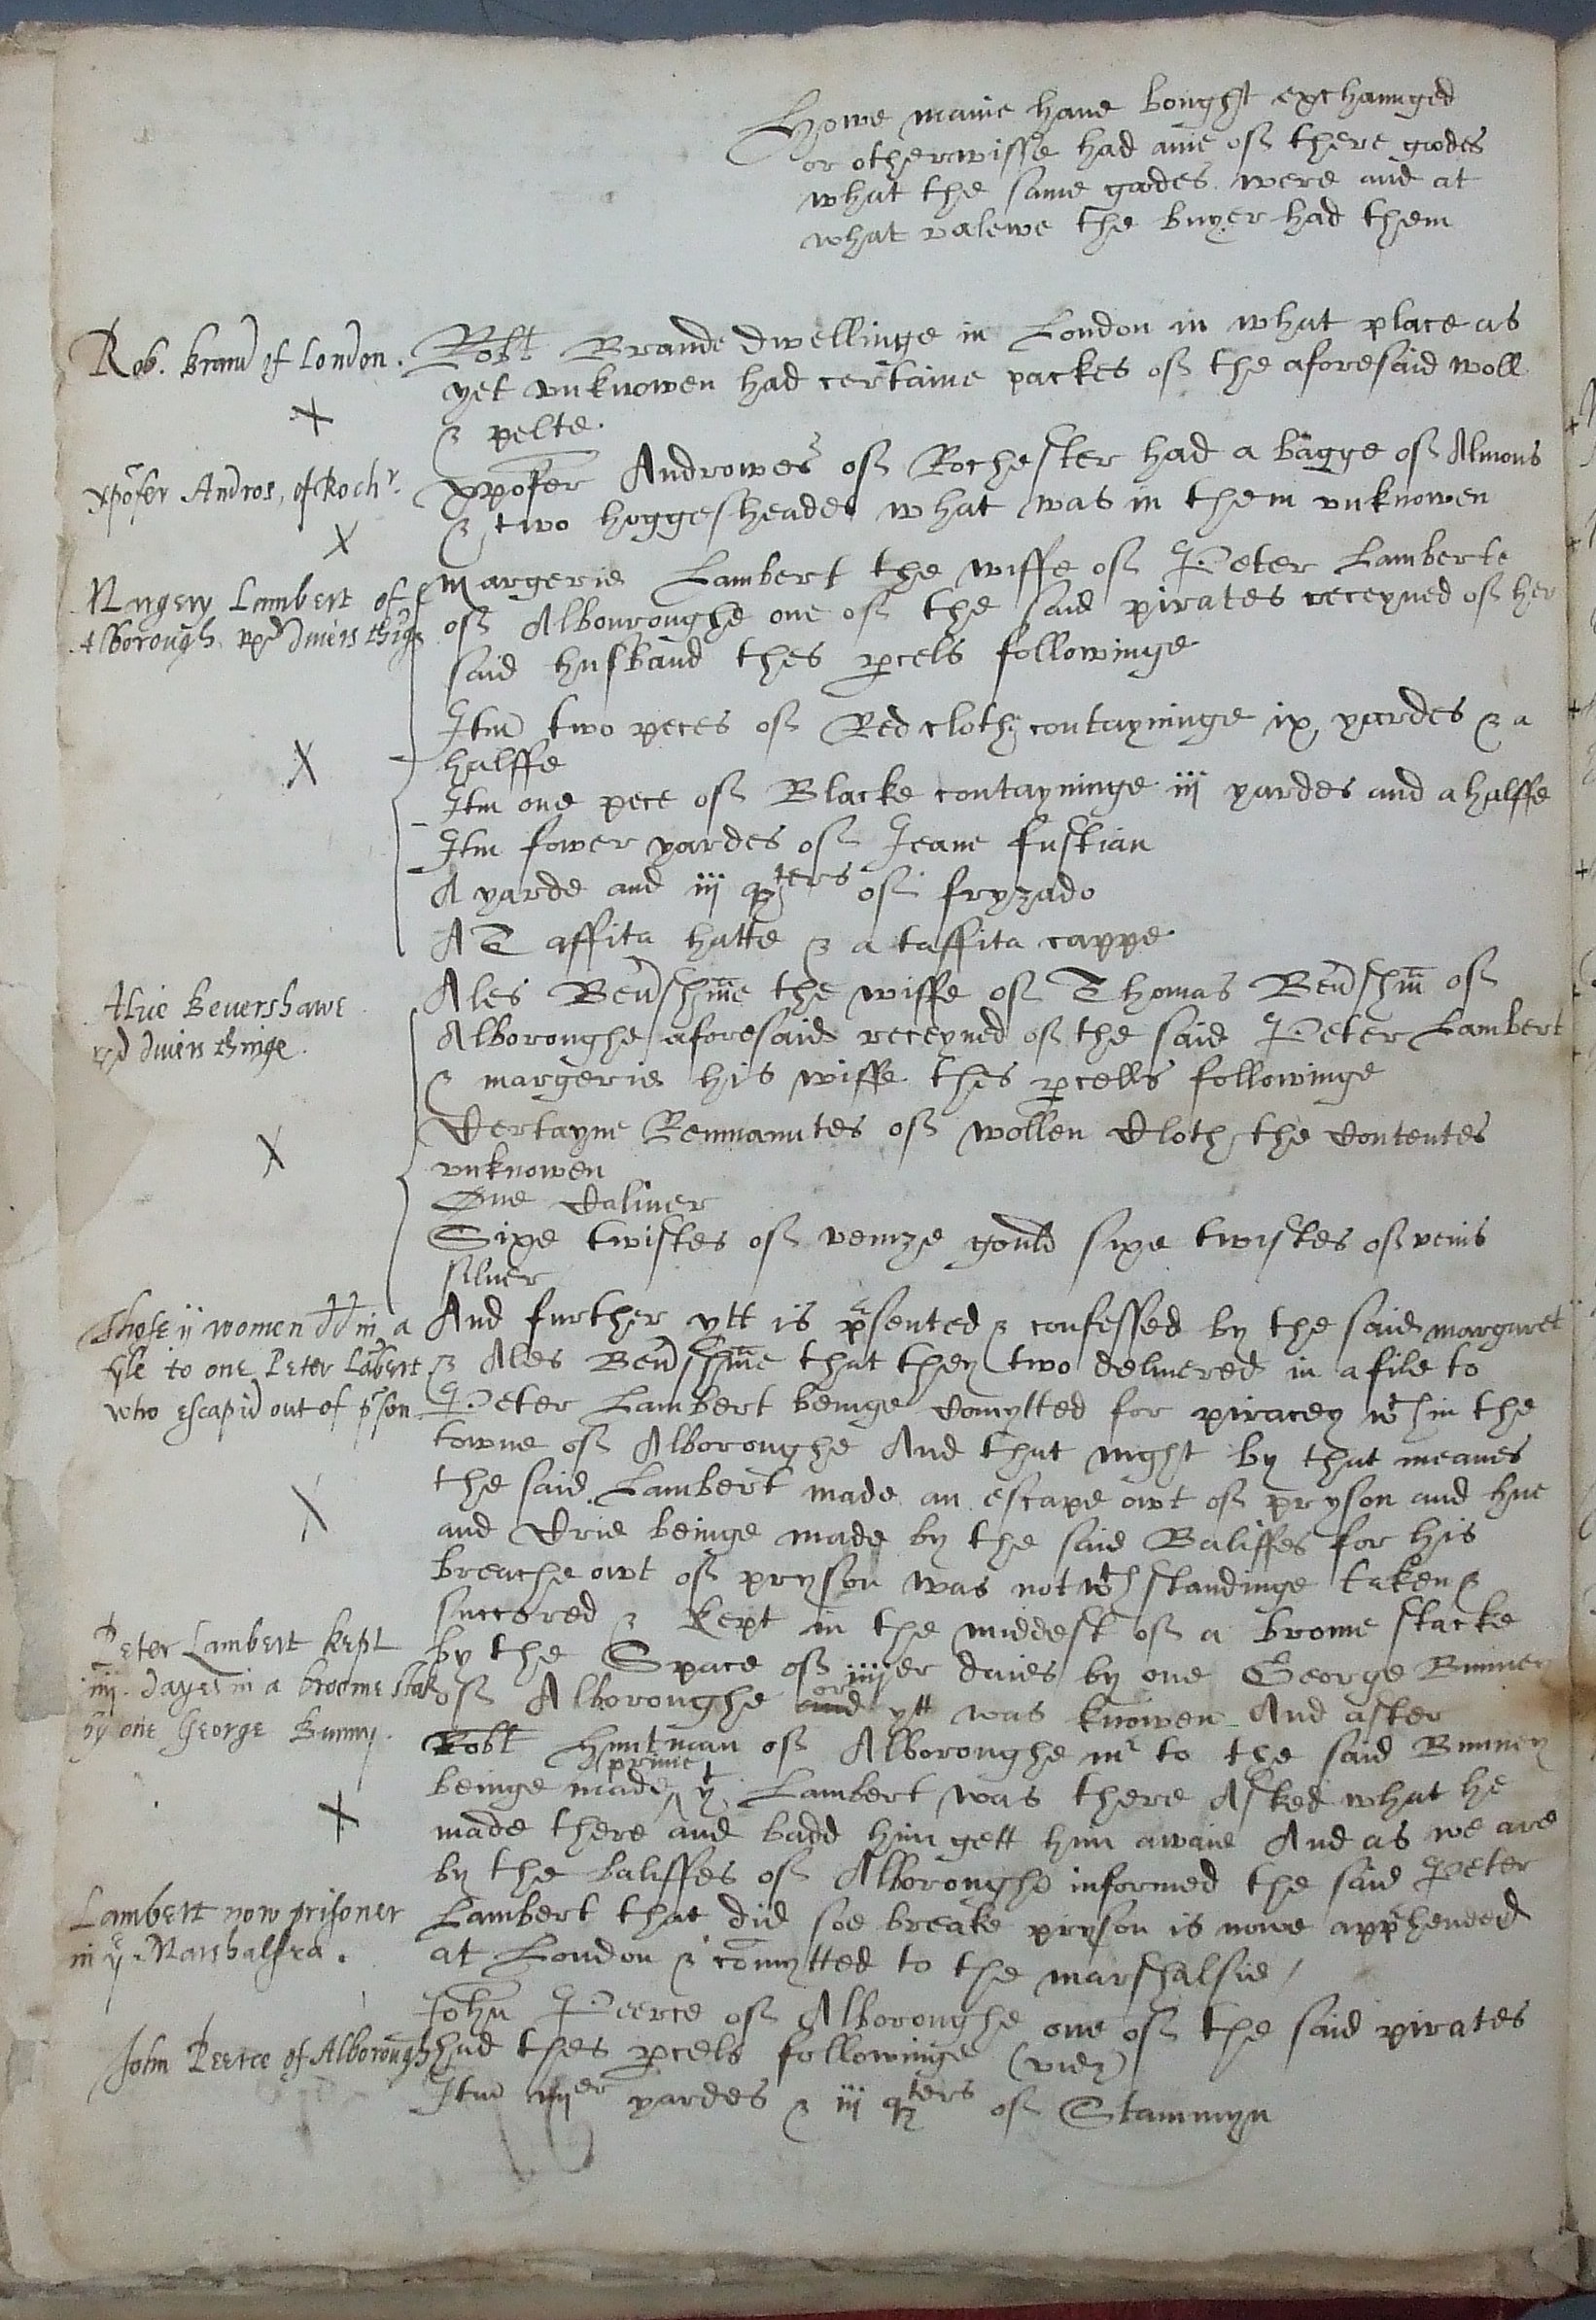 Howe manie haue bought exchaunged
or otherwisse had anie of there goodes
what the same goodes were and at
what valewe the buyer had them
Rob. brand of London.
Robt Brande dwellinge in London in what place as
yet vnknowen had certaine packes of the aforesaid woll
& pelte.
xpofer Andros, of Rochr.
Xpofer Androwes of Rochester had a bagge of Almons
& two hoggesheades what was in them vnknowen
Margery Lambert of
Alborough, rd divers thigs
Margerie Lambert the wiffe of Peter Lamberte
of Albouroughe one of the said pirates receyued of her
said husband thes pcels followinge
Itm two peces of Red cloth contayninge ix yardes & a
halffe
Itm one pece of Blacke contayninge iij yardes and a halffe
Itm fower yardes of Jeane fustian
A yarde and iij qters of fryzado
A Taffita hatte & a taffita cappe
Alice Bevershawe
rd divers thinge.
Ales Beushme the wiffe of Thomas Beushm of
Alboroughe aforesaid receyued of the said Peter Lambert
& margerie his wiffe thes pcells followinge
Certayne Remnantes of wollen Cloth the Contentes
vnknowen
One Caliuer
Sixe twistes of venize gould sixe twistes of venis
siluer
Those ij women dd in a
fyle to one Peter Labert
who escapid out of pson
And further ytt is psented & confessed by the said margaret
& Ales Beushme that they two deliuered in a file to
Peter Lambert beinge Comytted for piracey wthin the
towne of Alboroughe And that night by that meanes
the said Lambert made an escape owt of pryson and hue
and Crie beinge made by the said Baliffes for his
breache owt of pryson was notwthstandinge taken &
succored & kept in the middest of a brome stacke
Peter Lambert kept
iiij. dayes in a broome stak
by one George Bunny.
by the Space of iiijer daies by one George Bunney
of Alboroughe and or ytt was knowen And after
Robt Huntman of Alboroughe mr to the said Bunney
beinge made privie yt Lambert was there Asked what he
made there and badd him gett him awaie And as we are
by the baliffes of Alboroughe informed the said Peter
Lambert now prisoner
in ye Marshalsea.
Lambert that did soe breake pryson is nowe apphended
at London & comytted to the marshalsie /
John Peerce of Alborough
John Peerce of Alboroughe one of the said pirates
had thes pcels followinge (vidz)
Itm iiijer yardes & iij qters of Stammyn